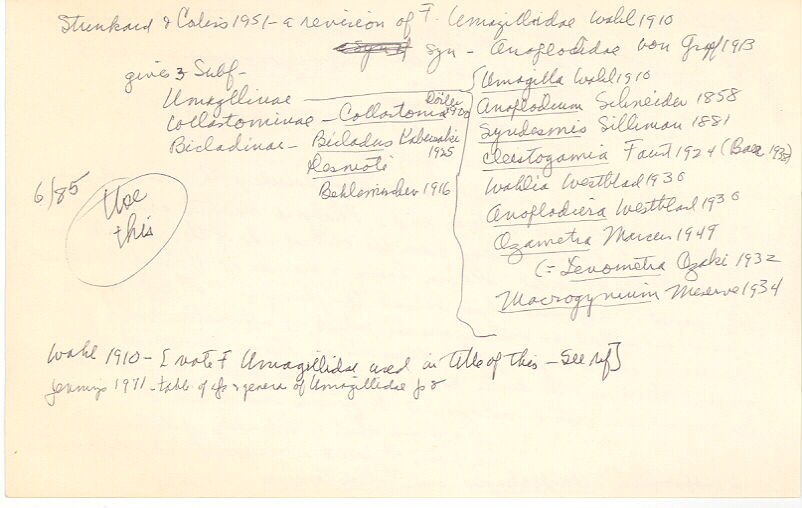 Stunkard & Corliss 1951 - a revision of F. Umagillidae Wahl 1910
Syn - Anoplodiidae von Graff 1913
gives 3 Subf -
Umagillinae
Collastominae - Collastoma Dörler 1900
Bicladinae - Bicladus Kaburaki 1925
Desmote
Beklemischev 1916
Umagilla Wahl 1910
Anoplodium Schneider 1858
Syndesmis Silliman 1881
Cleistogamia Faust 1924 (Baer 1938)
Wahlia Westblad 1930
Anoplodiera Westblad 1930
Ozametra Marcus 1949
(= Xenometra Ozaki 1932
Macrogynium Meserve 1934
6/85
Use
this
Wahl 1910 - [note F Umagillidae used in title of this - See ref]
Jennings 1971 - table of spp & genera of Umagillidae